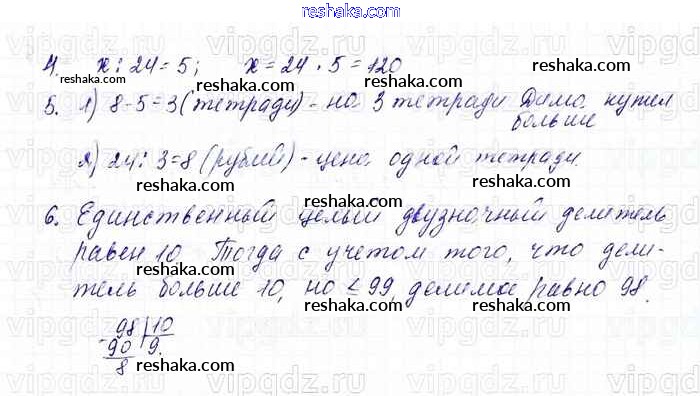 reshaka.com
4. x : 24 = 5; x = 24 · 5 = 120
5. 1) 8 - 5 = 3 (тетради) - на 3 тетради Дима купил
больше
2) 24 : 3 = 8 (рублий) - цена одной тетради.
6. Единственный целый двузночный делитель
равен 10 Тогда с учетом того, что дели-
тель больше 10, но ≤ 99, делимое равно 98.
98 | 10
- 90 | 9.
8
reshaka.com